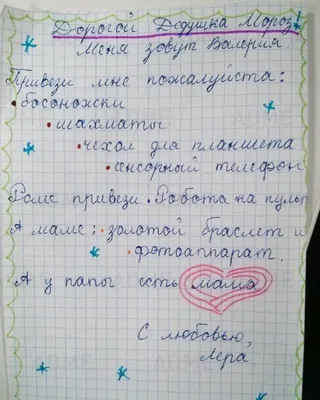 Дорогой Дедушка Мороз!
Меня зовут Валерия.
Привези мне пожалуйста:
• босоножки
• шахматы
• чехол для планшета
• сенсорный телефон
Роме привези • Робота на пульт
А маме: • золотой браслет и
• фотоаппарат.
А у папы есть мама
С любовью,
Лера.